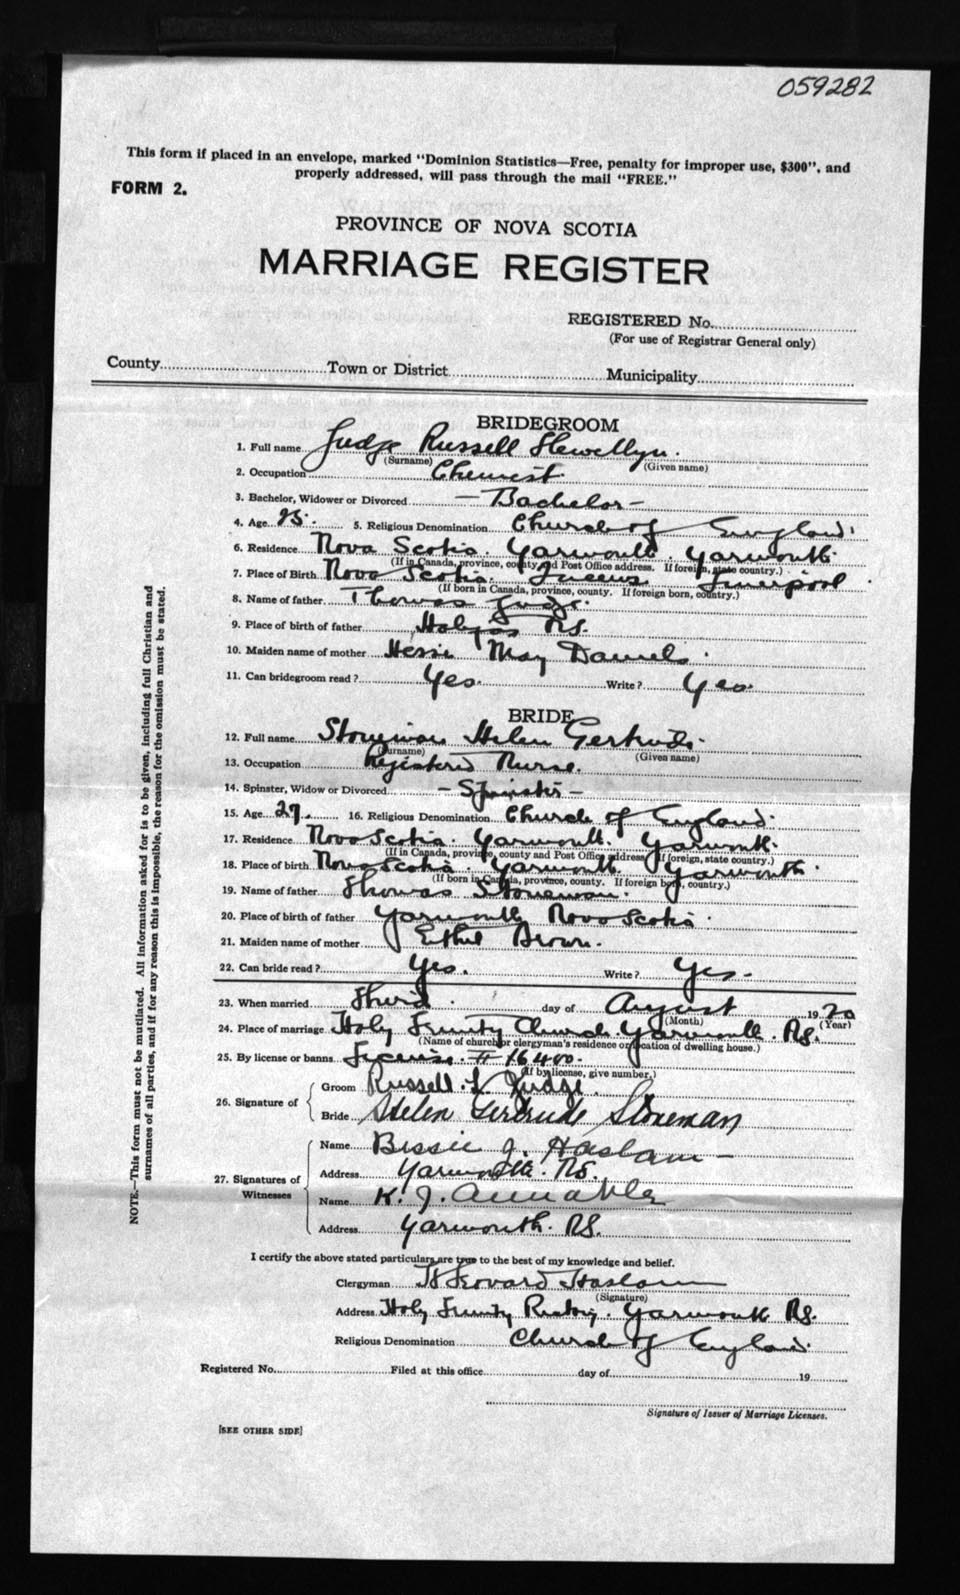 059282
This form if placed in an envelope, marked "Dominion Statistics—Free, penalty for improper use, $300", and
properly addressed, will pass through the mail "FREE."
FORM 2.
PROVINCE OF NOVA SCOTIA
MARRIAGE REGISTER
REGISTERED No.
(For use of Registrar General only)
County Town or District Municipality
BRIDEGROOM
1. Full name Judge Russell Llewellyn.
(Surname) (Given name)
2. Occupation Chemist
3. Bachelor, Widower or Divorced — Bachelor —
4. Age 25. 5. Religious Denomination Church of England.
6. Residence Nova Scotia. Yarmouth. Yarmouth.
(If in Canada, province, county and Post Office address. If foreign, state country.)
7. Place of Birth Nova Scotia. Queens Liverpool
(If born in Canada, province, county. If foreign born, country.)
8. Name of father Thomas Judge.
9. Place of birth of father Halifax N.S.
10. Maiden name of mother May Daniels.
11. Can bridegroom read? Yes. Write? Yes.
BRIDE
12. Full name Stoneman Helen Gertrude.
(Surname) (Given name)
13. Occupation Registered Nurse.
14. Spinster, Widow or Divorced — Spinster —
15. Age 27. 16. Religious Denomination Church of England.
17. Residence Nova Scotia. Yarmouth. Yarmouth.
(If in Canada, province, county and Post Office address. If foreign, state country.)
18. Place of birth Nova Scotia. Yarmouth. Yarmouth.
(If born in Canada, province, county. If foreign born, country.)
19. Name of father Thomas Stoneman.
20. Place of birth of father Yarmouth Nova Scotia.
21. Maiden name of mother Ethel Brown.
22. Can bride read? Yes. Write? Yes.
23. When married Third. day of August 19
(Month) (Year)
24. Place of marriage Holy Trinity Church. Yarmouth. N.S.
(Name of church or clergyman's residence or location of dwelling house.)
25. By license or banns License. # 16400.
(If by license, give number.)
26. Signature of
Groom Russell L. Judge.
Bride Helen Gertrude Stoneman
27. Signatures of Witnesses
Name Bessie J. Haslam —
Address Yarmouth. N.S.
Name K. J. Annable
Address Yarmouth. N.S.
I certify the above stated particulars are true to the best of my knowledge and belief.
Clergyman Haslam
(Signature)
Address Holy Trinity Rectory. Yarmouth N.S.
Religious Denomination Church of England.
Registered No. Filed at this office day of 19
Signature of Issuer of Marriage Licenses.
[SEE OTHER SIDE]
NOTE.—This form must not be mutilated. All information asked for is to be given, including full Christian and
surnames of all parties, and if for any reason this is impossible, the reason for the omission must be stated.